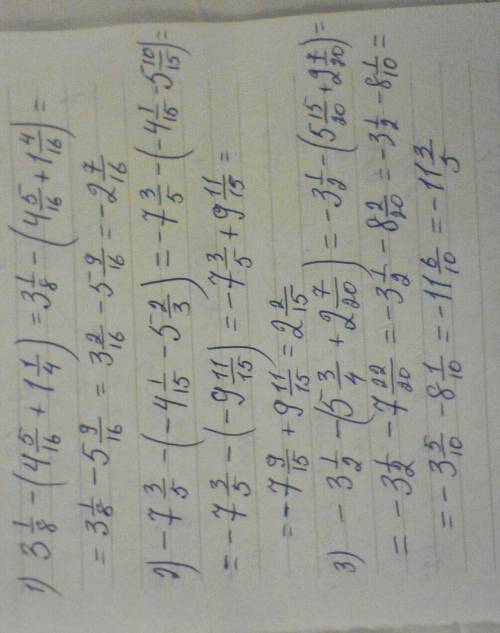 1) 3 1/8 - (4 5/16 + 1 1/4) = 3 1/8 - (4 5/16 + 1 4/16) =
= 3 1/8 - 5 9/16 = 3 2/16 - 5 9/16 = -2 7/16
2) -7 3/5 - (-4 1/15 - 5 2/3) = -7 3/5 - (-4 1/15 - 5 10/15) =
= -7 3/5 - (-9 11/15) = -7 3/5 + 9 11/15 =
= -7 9/15 + 9 11/15 = 2 2/15
3) -3 1/2 - (5 3/4 + 2 7/20) = -3 1/2 - (5 15/20 + 2 7/20) =
= -3 1/2 - 7 22/20 = -3 1/2 - 8 2/20 = -3 1/2 - 8 1/10 =
= -3 5/10 - 8 1/10 = -11 6/10 = -11 3/5